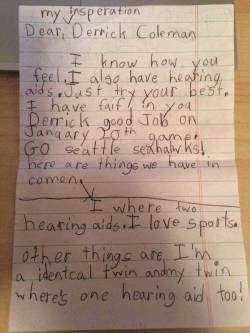 my insperation
Dear, Derrick Coleman
I know how you
feel. I also have hearing
aids. Just try your best.
I have faif in you
Derrick good Job on
January 20th game.
GO seattle seahawks!
here are things we have in
comen,
I where two
hearing aids. I love sports.
other things are, I'm
a identcal twin and my twin
where's one hearing aid too!